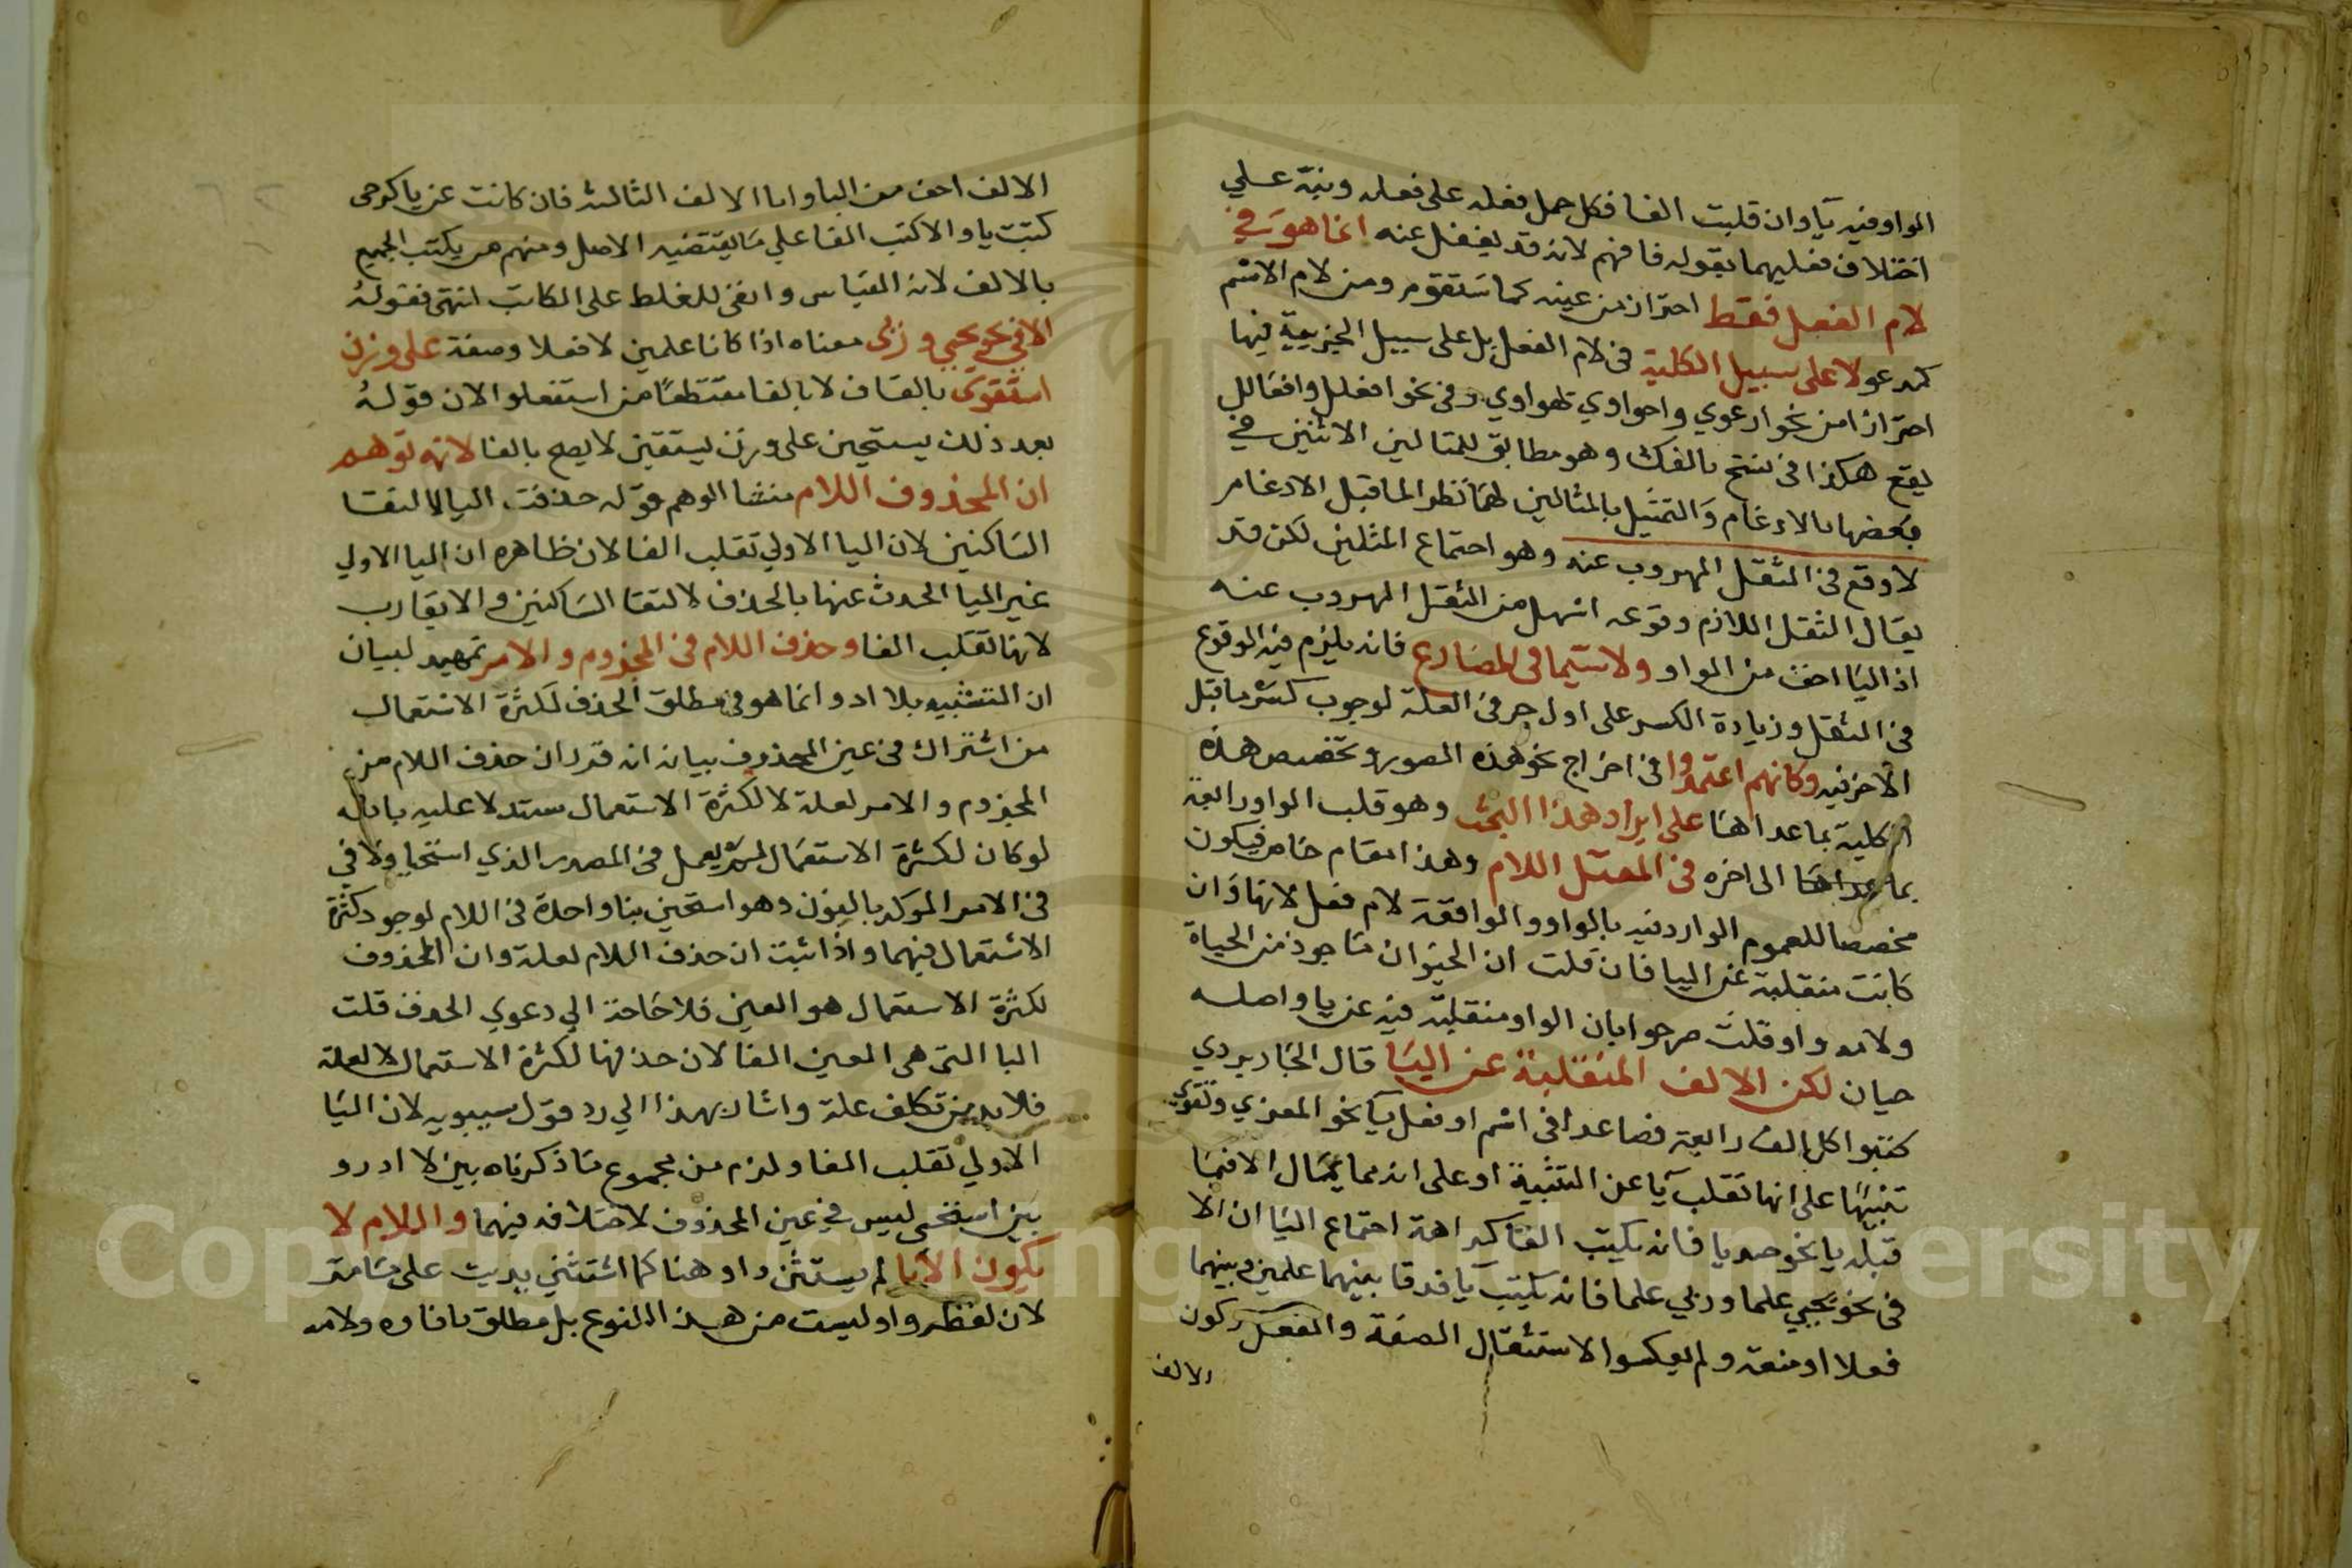 الواو فيه يآ وان قلبت الفا فكل حمل فعله على فعله ونبه علي
اختلاف فعليهما بقوله فافهم لانه قد يغفل عنه انما هو في
لام الفعل فقط احتراز من عينه كما ستقوم ومن لام الاسم
كمدعو لا على سبيل الكلية في لام الفعل بل على سبيل الجزيية فيها
احترازا من نحو ارعوي واحواوي وفي نحو افعلل وافعالل
يقع هكذا في نسخ بالفك وهو مطابق للمثالين الاثنين في
بعضها بالادغام والتمثيل بالمثالين لهما نظر الما قبل الادغام
لا وقع في الثقل المهروب عنه وهو اجتماع المثلين لكن قد
يقال الثقل اللازم وقوعه اسهل من الثقل المهروب عنه
اذ اليا اخف من الواو ولاسيما في المضارع فانه يلزم فيه الوقوع
في الثقل وزيادة الكسر على اول حرفي العلة لوجوب كسر ما قبل
الاخر فيه وكانهم اعتمدوا في اخراج نحو هذه الصور وتخصيص هذه
الكلية بما عداها على ايراد هذا البحث وهو قلب الواو رابعة
بما عداها الى اخره في المعتل اللام وهذا مقام خاص فيكون
مخصصا للعموم الوارد فيه بالواو والواقعة لام فعل لانها وان
كانت منقلبة عن اليا فان قلت ان الحيوان ماخوذ من الحياة
ولامه واو قلت صرحوا بان الواو منقلبة فيه عن يا واصله
حيان لكن الالف المنقلبة عن اليا قال الجاربردي
كتبوا كل الف رابعة فصاعدا في اسم او فعل يآ نحو المغزي وتقوي
تنبيها على انها تقلب يآ عن التثنية او على انه مما يمال الا فيما
قبله يا نحو صديا فانه يكتب الفا كراهة اجتماع اليا ان الا
في نحو يحيي علما وربي علما فانه يكتب يآ فرقا بينهما علمين وبينهما
فعلا او صفة ولم يعكسوا لاستثقال الصفة والفعل وكون
الالف
الالف اخف من اليا واما الالف الثالثة فان كانت عن يا كرحى
كتبت يا والا كتب الفا علي ما يقتضيه الاصل ومنهم من يكتب الجميع
بالالف لانه القياس وانفى للغلط على الكاتب انتهى فقوله
الا في نحو يحيي وربى معناه اذا كانا علمين لا فعلا وصفة على وزن
استقوى بالقاف لا بالفا مقتطعا من استفعلوا لان قوله
بعد ذلك يستحين على وزن يستقين لا يصح بالفا لانه توهم
ان المحذوف اللام منشا الوهم قوله حذفت اليا لالتقا
الساكنين لان اليا الاولي تقلب الفا لان ظاهره ان اليا الاولي
غير اليا المحدث عنها بالحذف لالتقا الساكنين والا يقارب
لانها تقلب الفا وحذف اللام في المجزوم والامر تمهيد لبيان
ان التشبيه بلا ادر وانما هو في مطلق الحذف لكثرة الاستعمال
من اشتراك في عين المحذوف بيانه انه قدر ان حذف اللام من
المجزوم والامر لعلة لا لكثرة الاستعمال مستدلا عليه بانه
لو كان لكثرة الاستعمال لم يعمل في المصدر الذي استحيا ولا في
في الامر الموكد بالنون وهو استحين بنا واحدة في اللام لوجود كثرة
الاستعمال فيهما واذا ثبت ان حذف اللام لعلة وان المحذوف
لكثرة الاستعمال هو العين فلا حاجة الي دعوي الحذف قلت
اليا التي هي العين الفا لان حذفها لكثرة الاستعمال لا لعلة
فلا بد من تكلف علة واشار بهذا الي رد قول سيبويه لان اليا
الاولي تقلب الفا ولزم من مجموع ما ذكرناه بين لا ادر و
بين استحى ليس في عين المحذوف لاختلافه فيهما واللام لا
يكون الا يا لم يستثن واو هنا كما استثني يديت على ما مر
لان لفظ واو ليست من هذا النوع بل مطلق ما فاوه ولامه